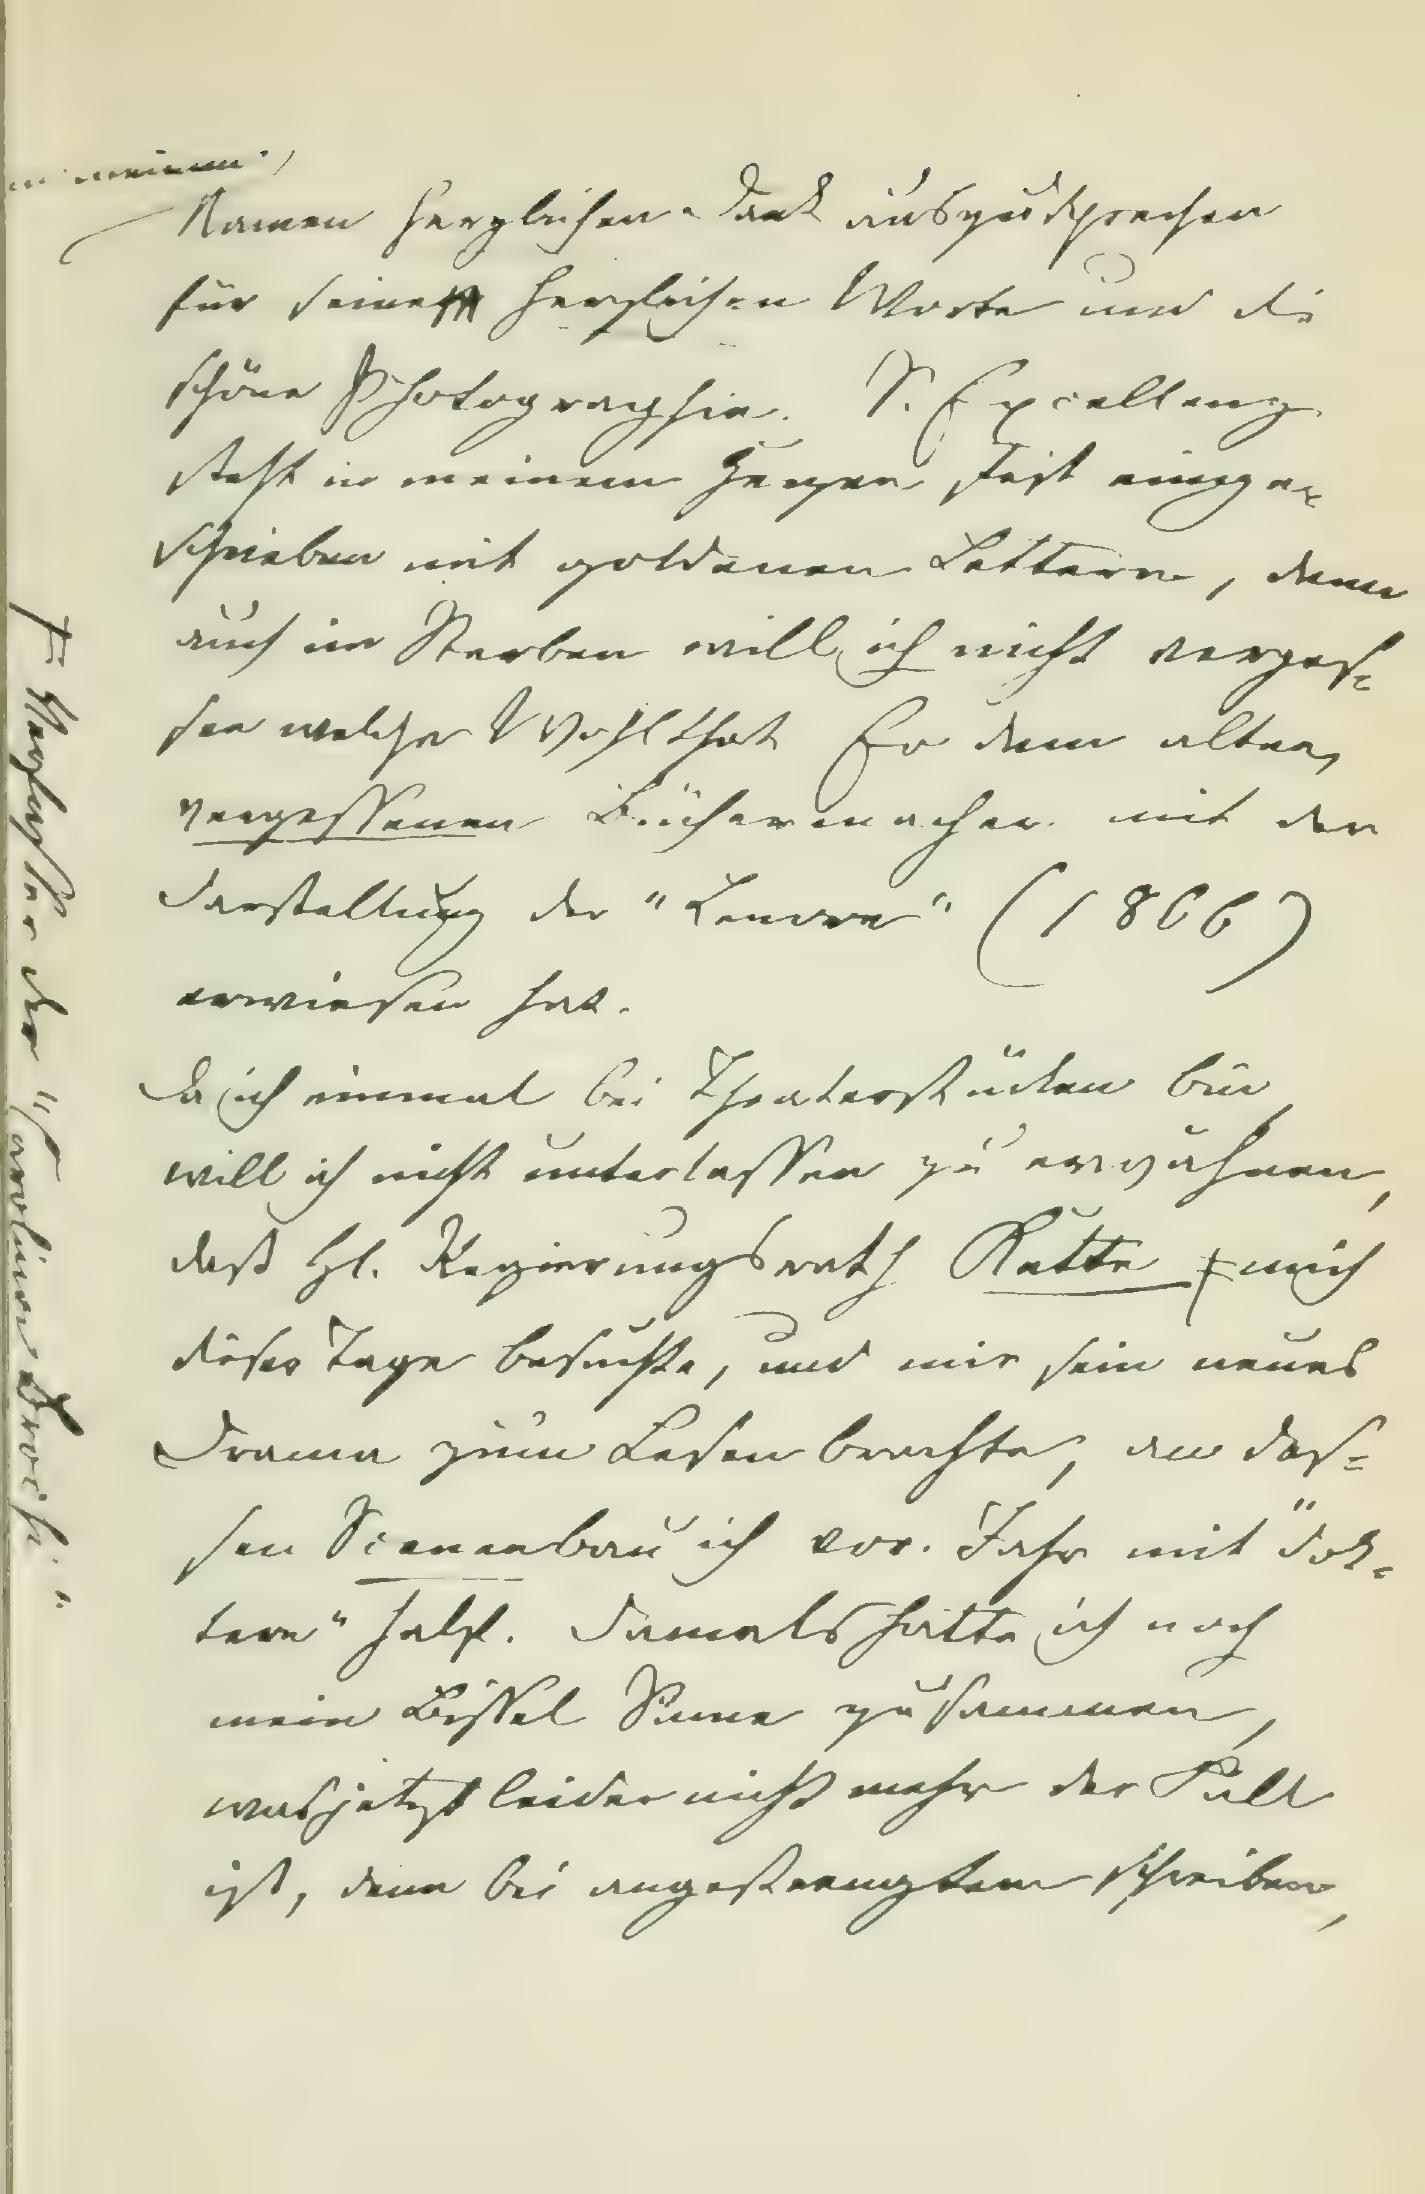 in meinem
Namen herzlichen Dank auszusprechen
für seine herzlichen Worte und die
schöne Photographie. S. Excellenz
steht in meinem Herzen fest einge=
schrieben mit goldenen Lettern, denn
auch im Sterben will ich nicht verges=
sen welche Wohlthat Er dem alten,
vergessenen Büchermacher mit der
Darstellung der "Lenore" (1866)
erwiesen hat.
Da ich einmal bei Theaterstücken bin,
will ich nicht unterlassen zu erwähnen,
daß Hl. Regierungsrath Rutte ‡ mich
dieser Tage besuchte, und mir sein neues
Drama zum Lesen brachte, an des=
sen Scenenbau ich vor. Jahr mit "dok=
tern" half. Damals hatte ich noch
mein Bissel Sinne zusammen,
was jetzt leider nicht mehr der Fall
ist, denn bei angestrengtem Schreiben,
‡ Verfasser der "Caroline Broch."